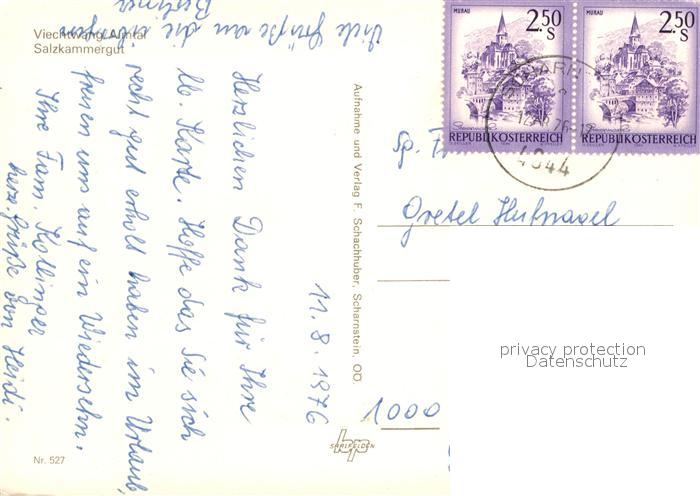 Viechtwang/Almtal
Salzkammergut
11.8.1976
Herzlichen Dank für Ihre
lb. Karte. Hoffe das Sie sich
recht gut erholt haben im Urlaub,
freuen uns auf ein Wiedersehn.
Ihre Fam. Kollinger
herz. Grüße von Heidi.
Viele Grüße an die
Aufnahme und Verlag F. Schachhuber, Scharnstein, OÖ.
Nr. 527
bp
SAALFELDEN
MURAU
2.50
S
REPUBLIK ÖSTERREICH
MURAU
2.50
S
REPUBLIK ÖSTERREICH
4644
Sp.
Gretel Hufnagel
1000
privacy protection
Datenschutz